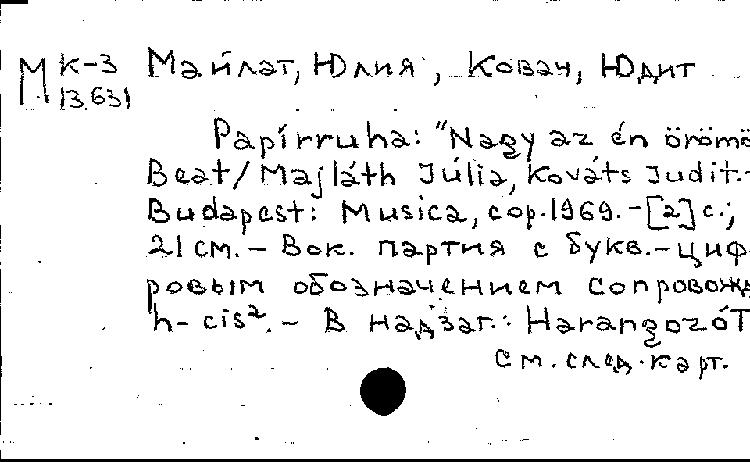 М К-3 Майлат, Юлия, Ковач, Юдит
13.631
Papírruha: "Nagy az én öröm
Beat/Majláth Júlia, Kováts Judit.-
Budapest: Musica, cop.1969.-[2]с.;
21 см.- Вок. партия с букв.-циф-
ровым обозначением сопровожд
h-cis².- В надзаг.: Harangozó T
См. след. карт.